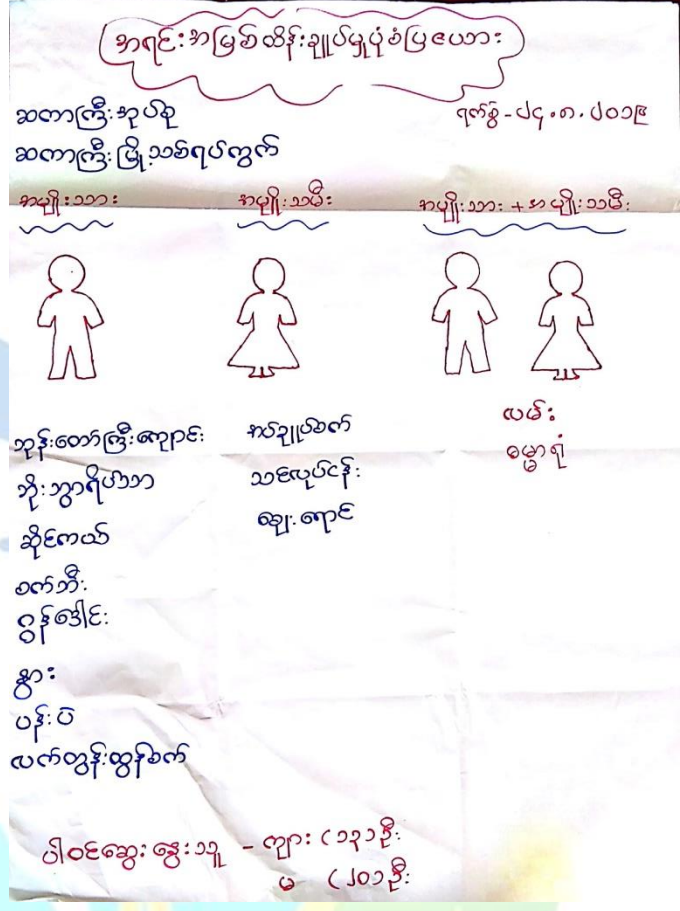 အရင်းအမြစ်ထိန်းချုပ်မှုပုံစံပြဇယား
ဆကာကြီးအုပ်စု
ရက်စွဲ - ၂၄.၈.၂၀၁၉
ဆကာကြီးမြို့သစ်ရပ်ကွက်
အမျိုးသား
အမျိုးသမီး
အမျိုးသား + အမျိုးသမီး
ဘုန်းတော်ကြီးကျောင်း
ဘိုးဘွားရိပ်သာ
ဆိုင်ကယ်
စက်ဘီး
ဂွန်ဒေါင်း
နွား
ပန်းပဲ
လက်တွန်းထွန်စက်
အပ်ချုပ်စက်
သစ်လုပ်ငန်း
ဈေးရောင်
လမ်း
ဓမ္မာရုံ
ပါဝင်ဆွေးနွေးသူ - ကျား (၁၃)ဦး
မ (၂၀)ဦး